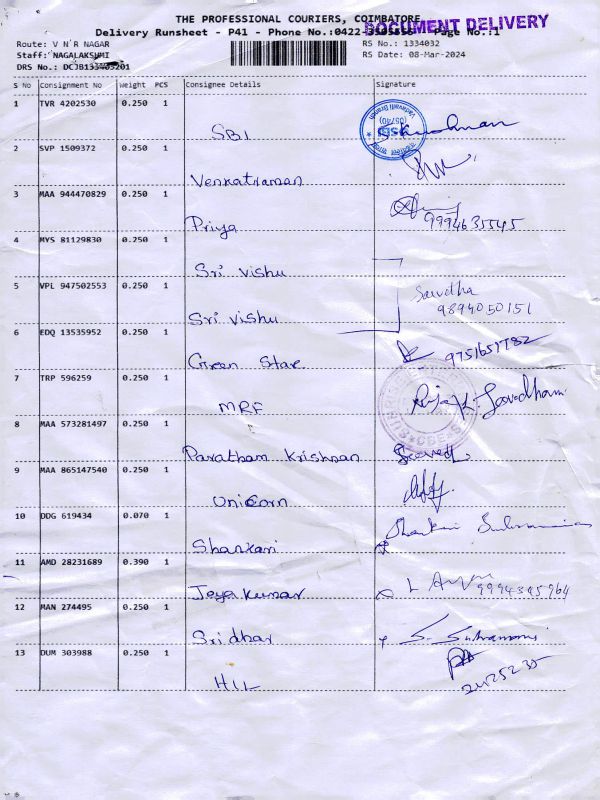 THE PROFESSIONAL COURIERS, COIMBATORE
DOCUMENT DELIVERY
Delivery Runsheet - P41 - Phone No.:0422- Page No.:1
Route: V N R NAGAR
RS No.: 1334032
Staff: NAGALAKSHMI
RS Date: 08-Mar-2024
DRS No.:
S No Consignment No Weight PCS Consignee Details Signature
1 TVR 4202530 0.250 1
SBI
2 SVP 1509372 0.250 1
Venkatraman
3 MAA 944470829 0.250 1
Priya 9994635545
4 MYS 81129830 0.250 1
Sri Vishu
5 VPL 947502553 0.250 1
Sri Vishu 9894050151
6 EDQ 13535952 0.250 1
Green Star 9751651782
7 TRP 596259 0.250 1
MRF
8 MAA 573281497 0.250 1
Paratham Krishnan
9 MAA 865147540 0.250 1
Unicorn
10 DDG 619434 0.070 1
Shankari
11 AMD 28231689 0.390 1
Jeyakumar
12 MAN 274495 0.250 1
Sridhar
13 DUM 303988 0.250 1
HIL